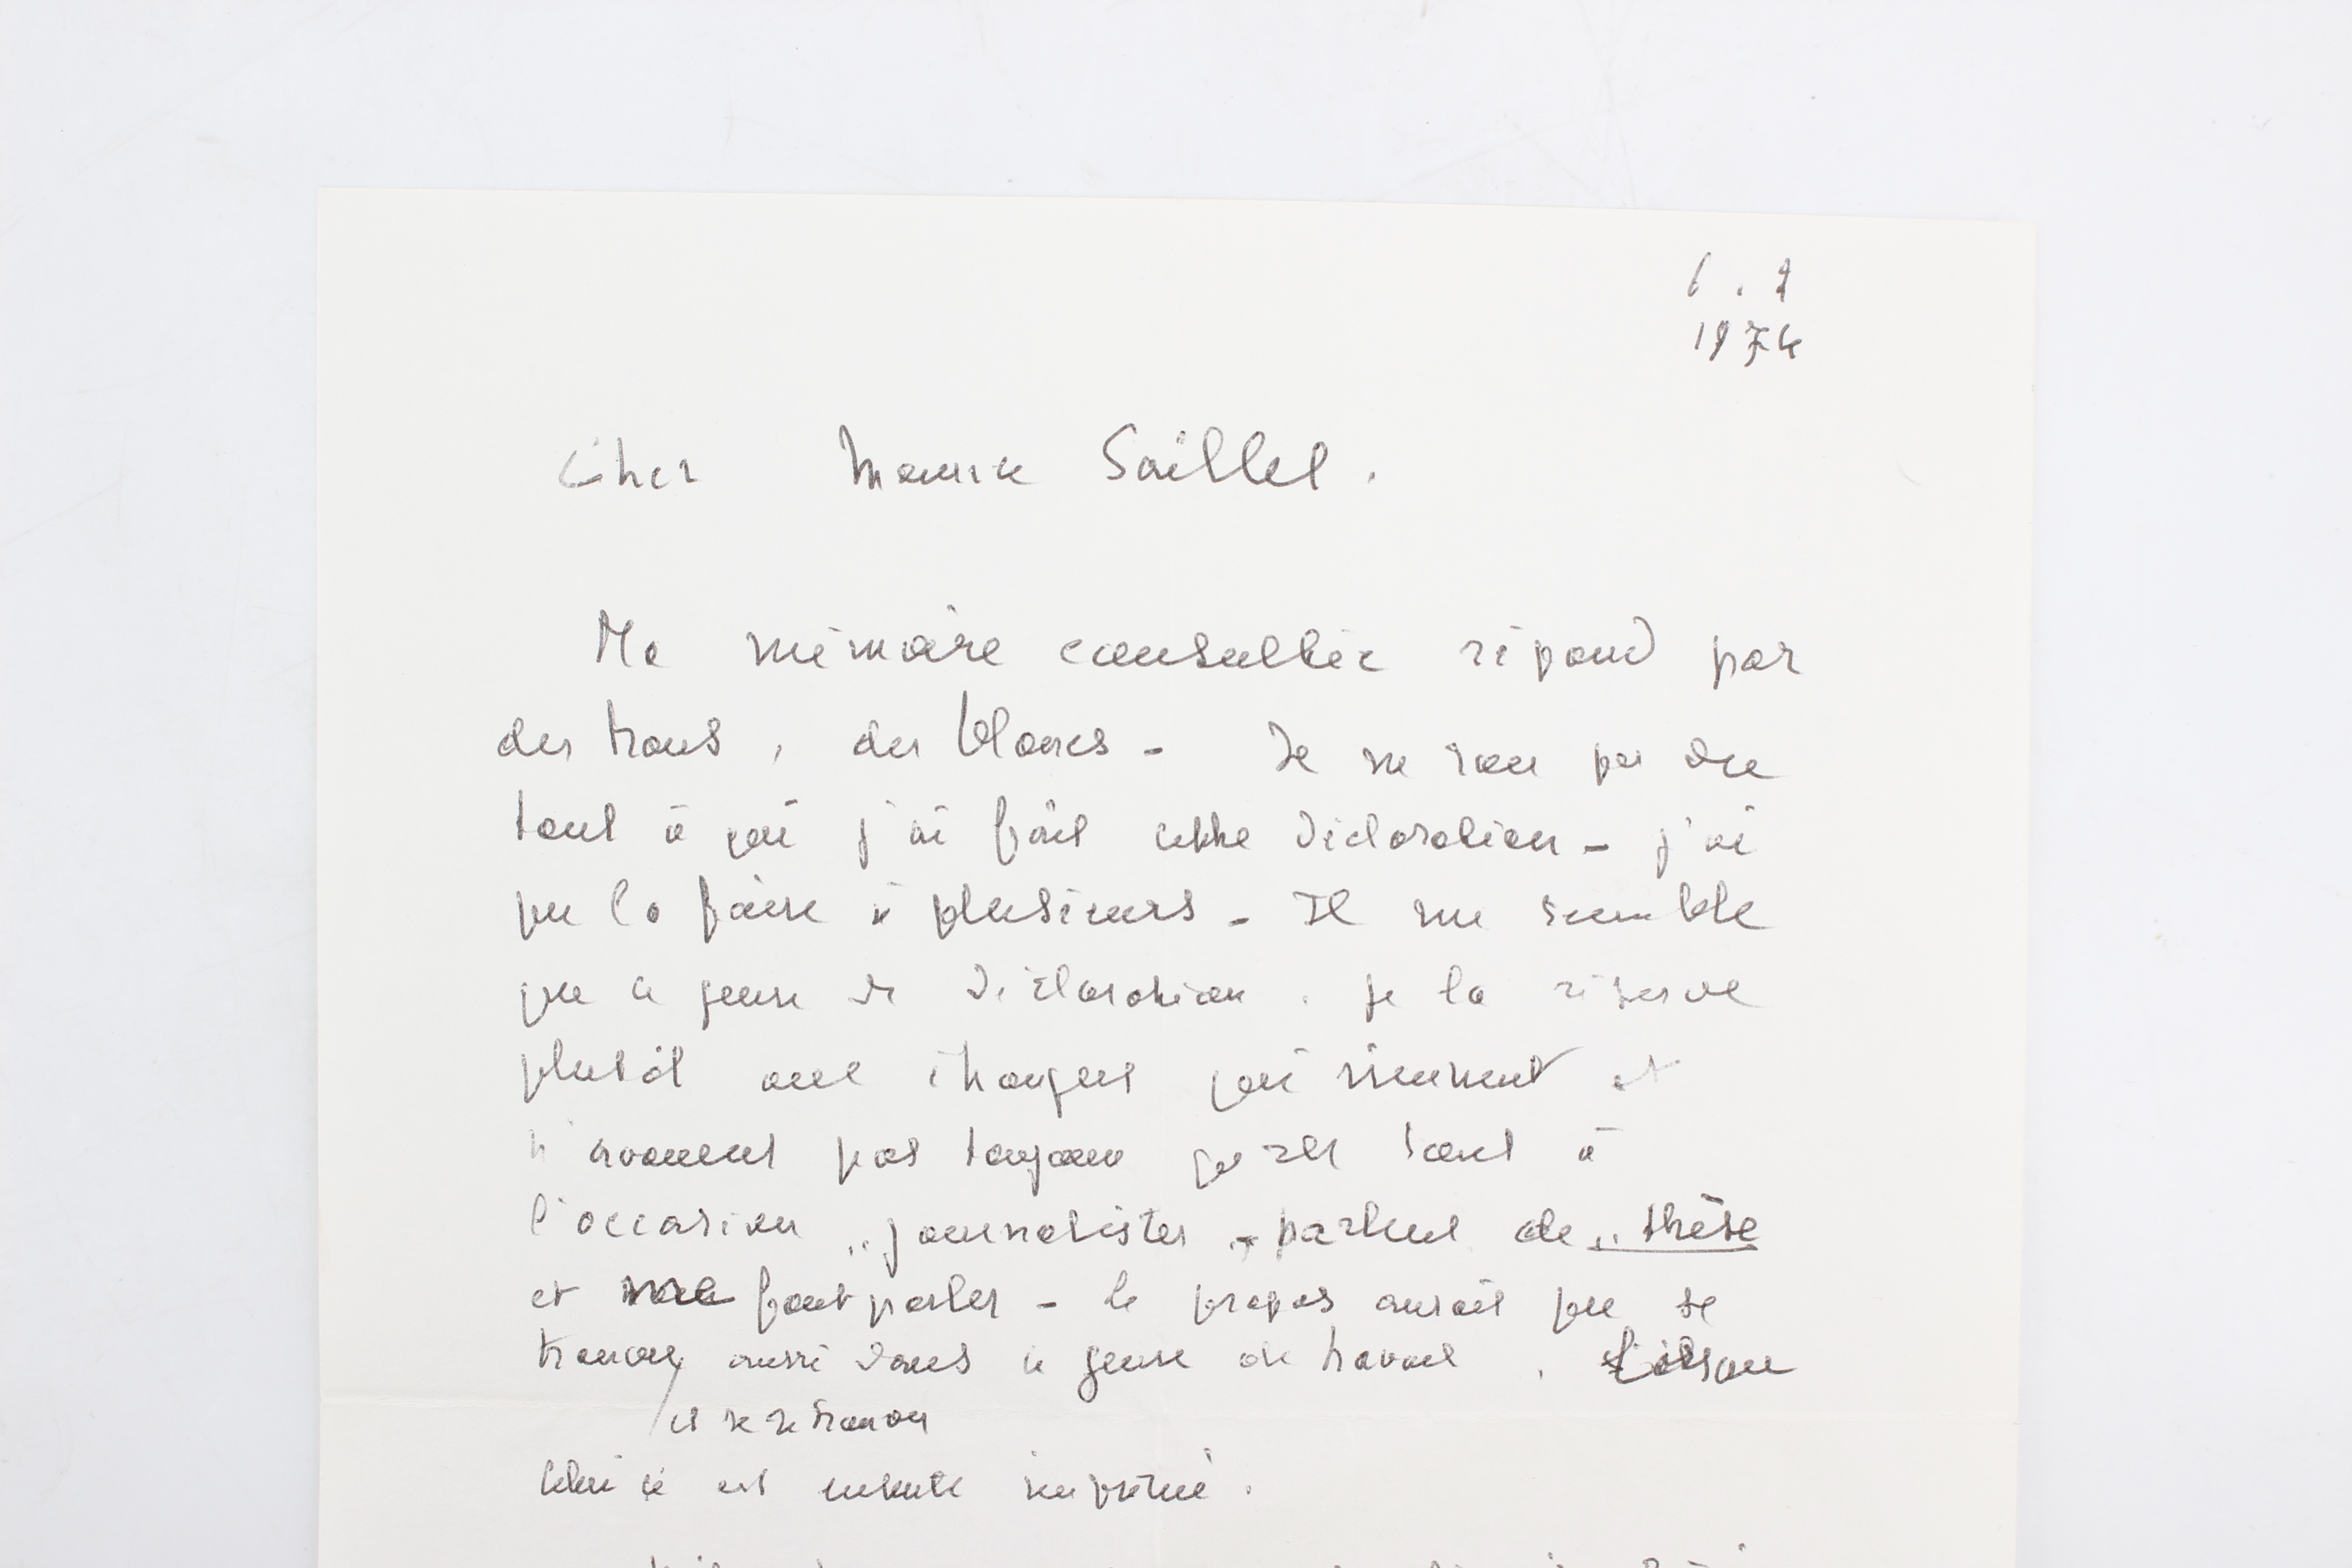 6.1
1974
Cher Maurice Saillet.
Ma mémoire consultée répond par
des trous, des blancs - Je ne sau pas dire
tout à qui j'ai fait cette déclaration - j'ai
pu la faire à plusieurs - Il me semble
que ce genre de déclaration. je la réserve
plutôt aux étrangers qui viennent et
n'avouent pas toujours qu'ils sont à
l'occasion "journalistes" - parlent de "thèse
et me font parler - le propos aurait pu se
trouver aussi dans ce genre de travail. Lorsque
et se retrouver
celui ci est ensuite imprimé.